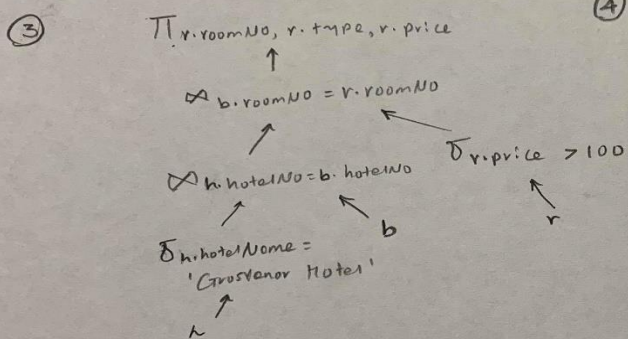 ③ ④
Π r.roomNo, r.type, r.price
↑
⋈ b.roomNo = r.roomNo
⋈ h.hotelNo = b.hotelNo
σ r.price > 100
b
r
σ h.hotelNome =
'Grosvenor Hotel'
h